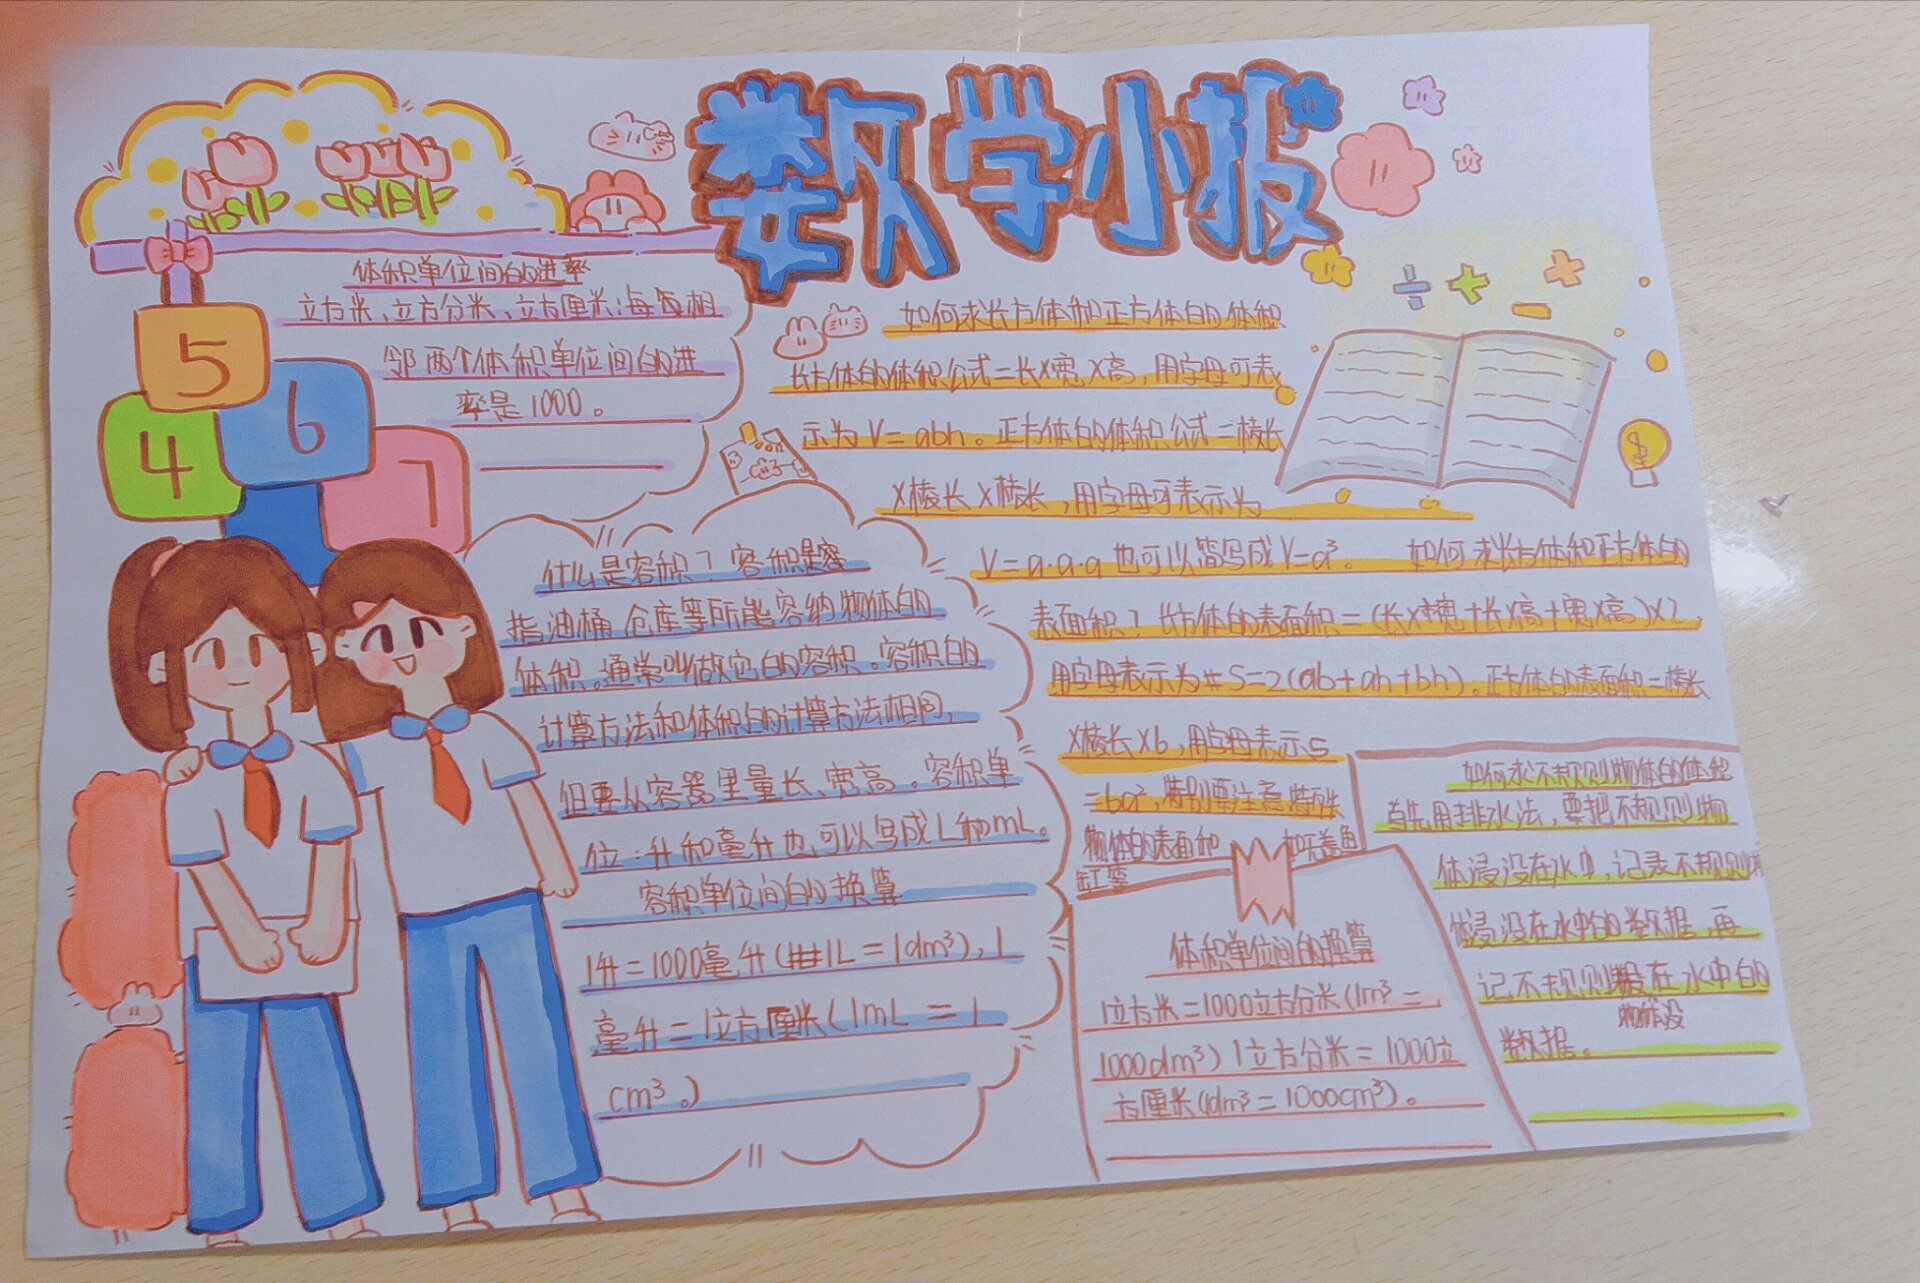 数学小报
体积单位间的进率
立方米、立方分米、立方厘米:每每相
邻两个体积单位间的进
率是1000。
5
6
4
7
如何求长方体和正方体的体积
长方体的体积公式=长X宽X高,用字母可表
示为V=abh。正方体的体积公式=棱长
X棱长X棱长,用字母可表示为
V=a.a.a也可以简写成V=a³。 如何求长方体和正方体的
表面积?长方体的表面积=(长X宽+长X高+宽X高)X2,
用字母表示为 S=2(ab+ah+bh)。正方体的表面积=棱长
X棱长X6,用字母表示S
=6a²,特别要注意特殊
物体的表面积 和无盖鱼
缸等
什么是容积?容积是
指油桶 仓库等所能容纳物体的
体积,通常叫做它的容积。容积的
计算方法和体积的计算方法相同,
但要从容器里量长、宽高。容积单
位:升和毫升也可以写成L和mL。
容积单位间的换算
1升=1000毫升(1L=1dm³),1
毫升=1立方厘米(1mL=1
cm³。)
体积单位间的换算
1立方米=1000立方分米(1m³=
1000dm³)1立方分米=1000立
方厘米(dm³=1000cm³)。
如何求不规则物体的体积
首先用排水法,要把不规则物
体浸没在水中,记录不规则物
体浸没在水中的数据,再
记不规则 在水中的
物体没
数据。